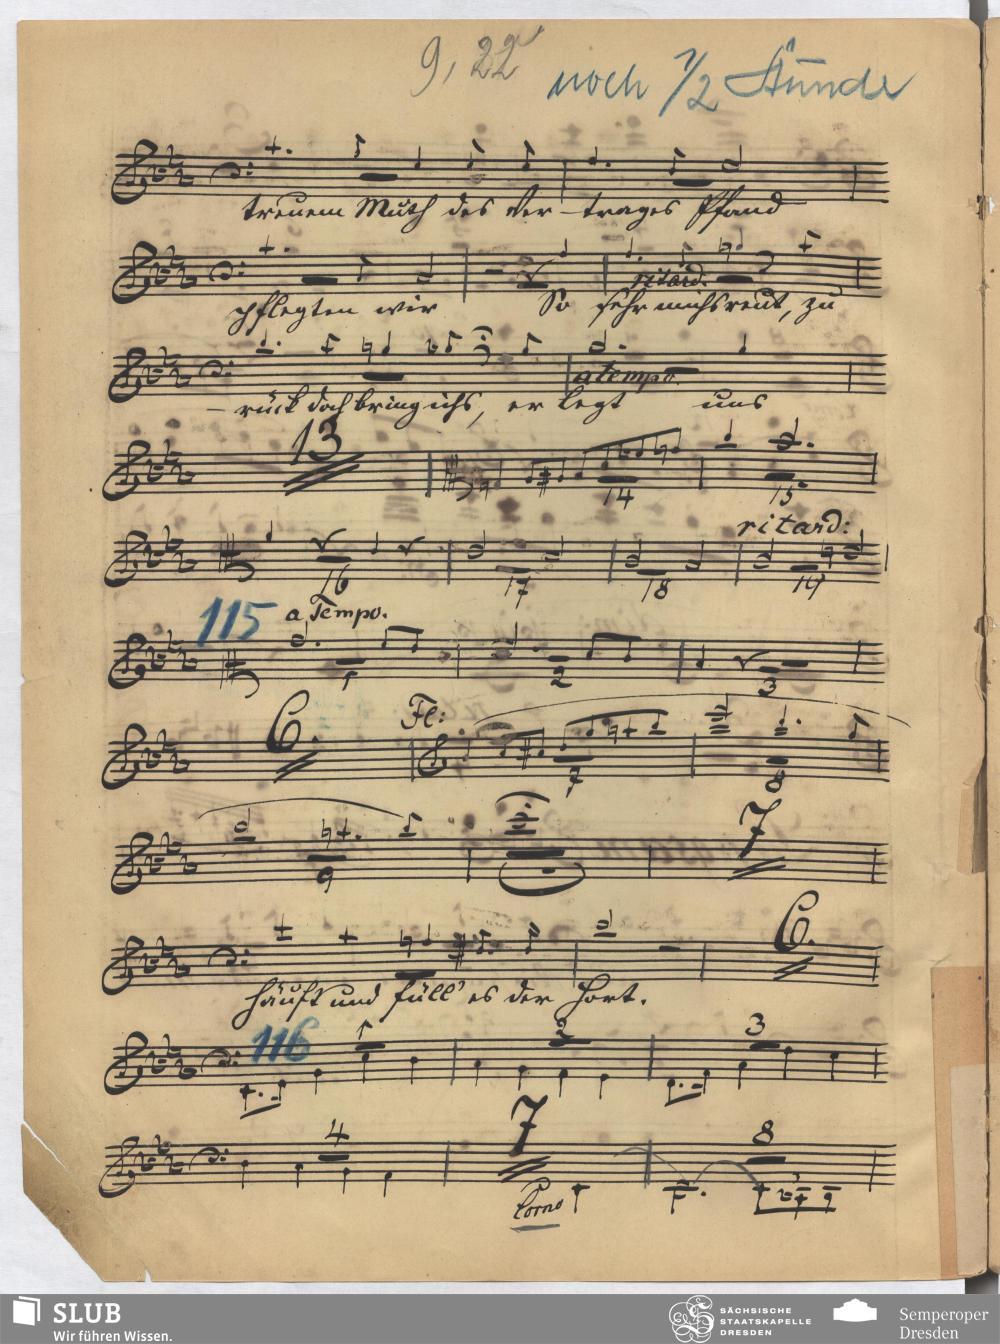 9, 22
noch 1/2 Stunde
treuem Muth des Ver-trages Pfand
pflegten wir So sehr michs reut, zu
ritard.
- rück doch bring ichs, er legt uns
a tempo.
13
14 15
ritard:
16 17 18 19
115 a Tempo.
1 2 3
6. Fl:
7 8
7
9
6.
häuft und füll' es der Hort.
116 1 2 3
4 7 8
Corno
SLUB
Wir führen Wissen.
SÄCHSISCHE
STAATSKAPELLE
DRESDEN
Semperoper
Dresden